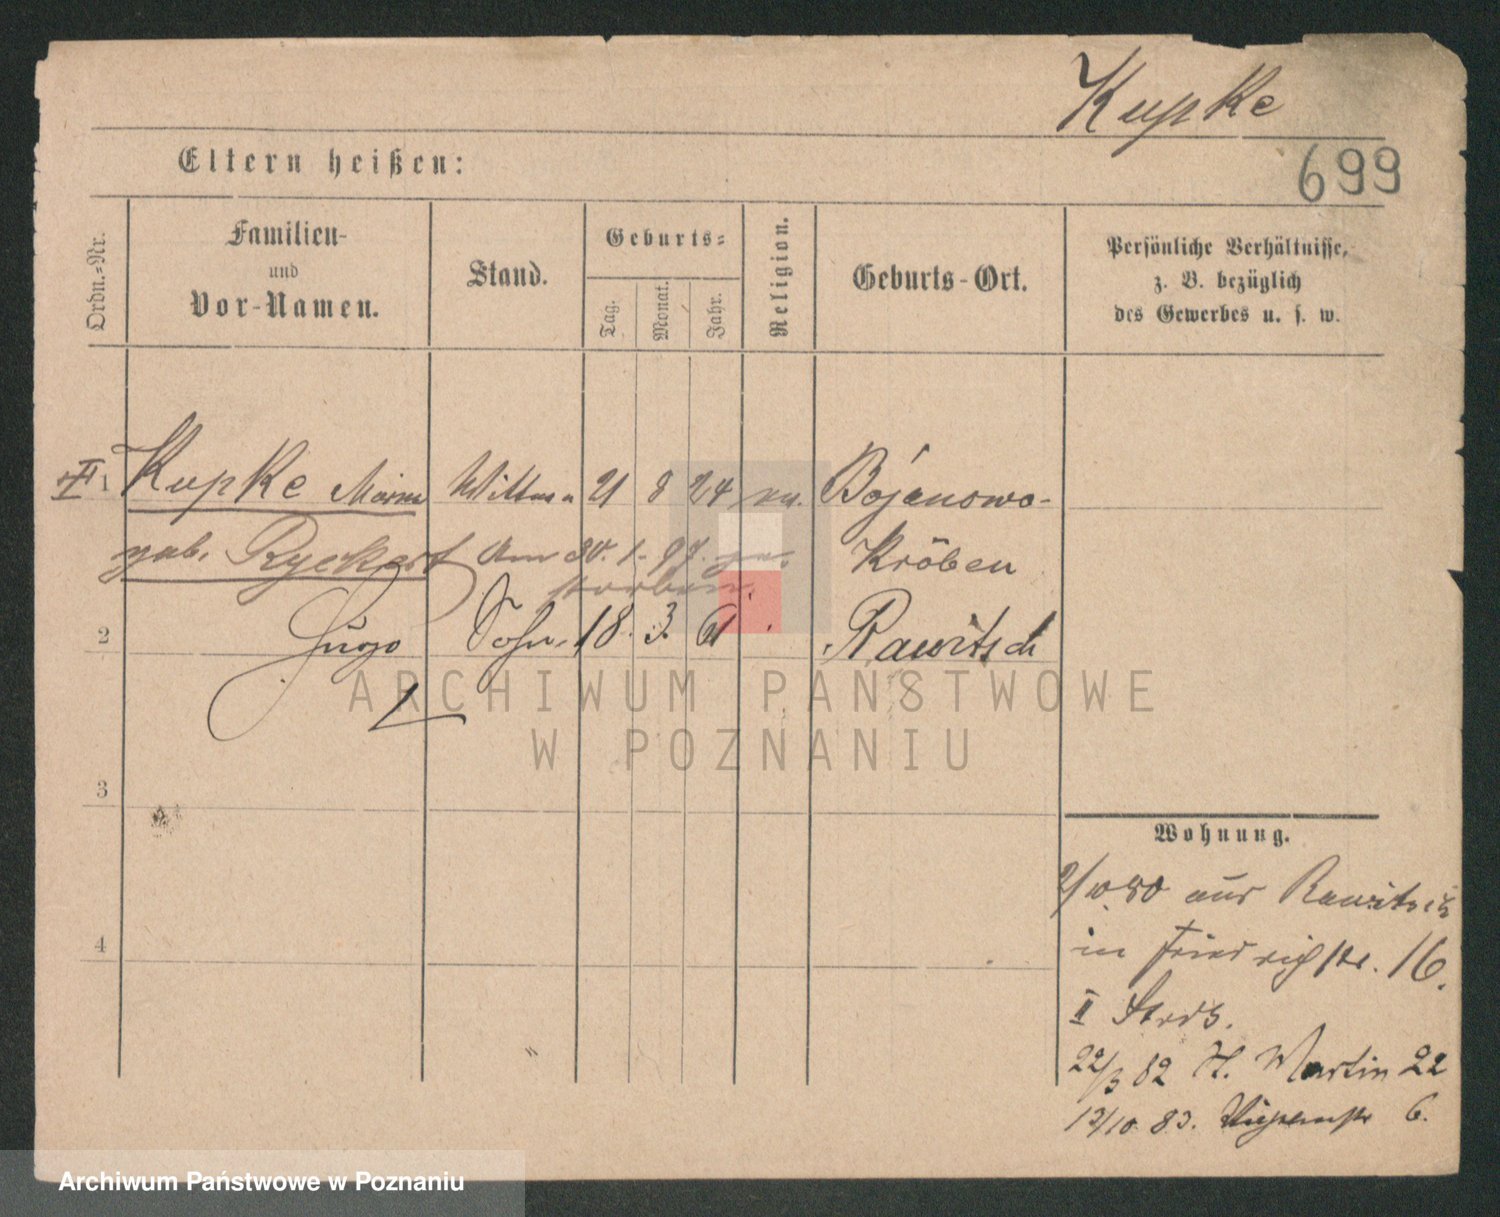 Kupke
699
Eltern heißen:
Ordn.=Nr.
Familien-
und
Vor-Namen.
Stand.
Geburts=
Tag.
Monat.
Jahr.
Religion.
Geburts-Ort.
Persönliche Verhältnisse,
z. B. bezüglich
des Gewerbes u. s. w.
1 Kupke 21 8 24 Bojanowo-
geb. Ryckert am 30. 1. ge- Kröben
storben.
2 Hugo Sohn 18. 3. 61 Rawitsch
3
4
Wohnung.
2/10 80 aus Rawitsch
in Friedrichstr. 16.
II
22/3 82 St. Martin 22
12/10. 83. 6.
ARCHIWUM PAŃSTWOWE
W POZNANIU
Archiwum Państwowe w Poznaniu